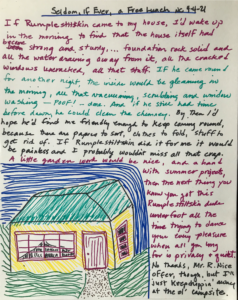 Seldom, if Ever, a Free Lunch
4-4-21
If Rumpelstiltskin came to my house, I'd wake up
in the morning to find that the house itself had
become strong and sturdy,... foundation rock solid and
all the water draining away from it, all the cracked
windows uncracked, all that stuff. If he came round
for another night, the interior would be gleaming in
the morning, all that vacuuming, scrubbing and window
washing - Poof! - done. And if he still had time
before dawn, he could clean the chimney. By then I'd
hope he'd find me friendly enough to keep coming round,
because there are papers to sort, clothes to fold, stuff to
get rid of. If Rumpelstiltskin did it for me it would
be painless and I probably wouldn't miss all that crap.
A little garden work would be nice, and a hand
with summer projects,
then the next thing you
know you got this
Rumpelstiltskin dude
underfoot all the
time trying to dance
your crazy pleasure
when all you long
for is privacy & quiet.
No Thanks, Mr. R. Nice
offer, though, but I'm
just Keepstuffin' away
at the ol' campsite.